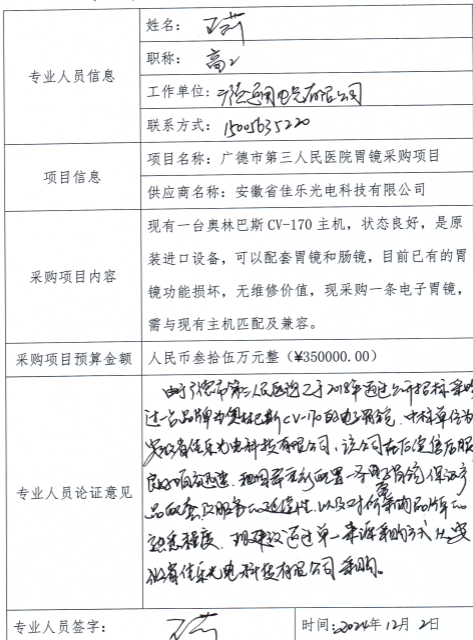 专业人员信息
姓名：王莉
职称：高工
工作单位：广德通用电气有限公司
联系方式：15005635220
项目信息
项目名称：广德市第三人民医院胃镜采购项目
供应商名称：安徽省佳乐光电科技有限公司
采购项目内容
现有一台奥林巴斯CV-170主机，状态良好，是原
装进口设备，可以配套胃镜和肠镜，目前已有的胃
镜功能损坏，无维修价值，现采购一条电子胃镜，
需与现有主机匹配及兼容。
采购项目预算金额
人民币叁拾伍万元整（¥350000.00）
专业人员论证意见
由于广德市第三人民医院已于2018年通过公开招标采购
过一台品牌为奥林巴斯CV-170的电子胃镜，中标单位为
安徽省佳乐光电科技有限公司，该公司在后续售后服
良好响应迅速，现因需要新配置一条电子胃镜，保证产
品配套及服务的延续性，以及对所采购品牌的
熟悉程度，现建议通过单一来源采购方式从安
徽省佳乐光电科技有限公司采购。
专业人员签字：王莉
时间：2024年12月2日